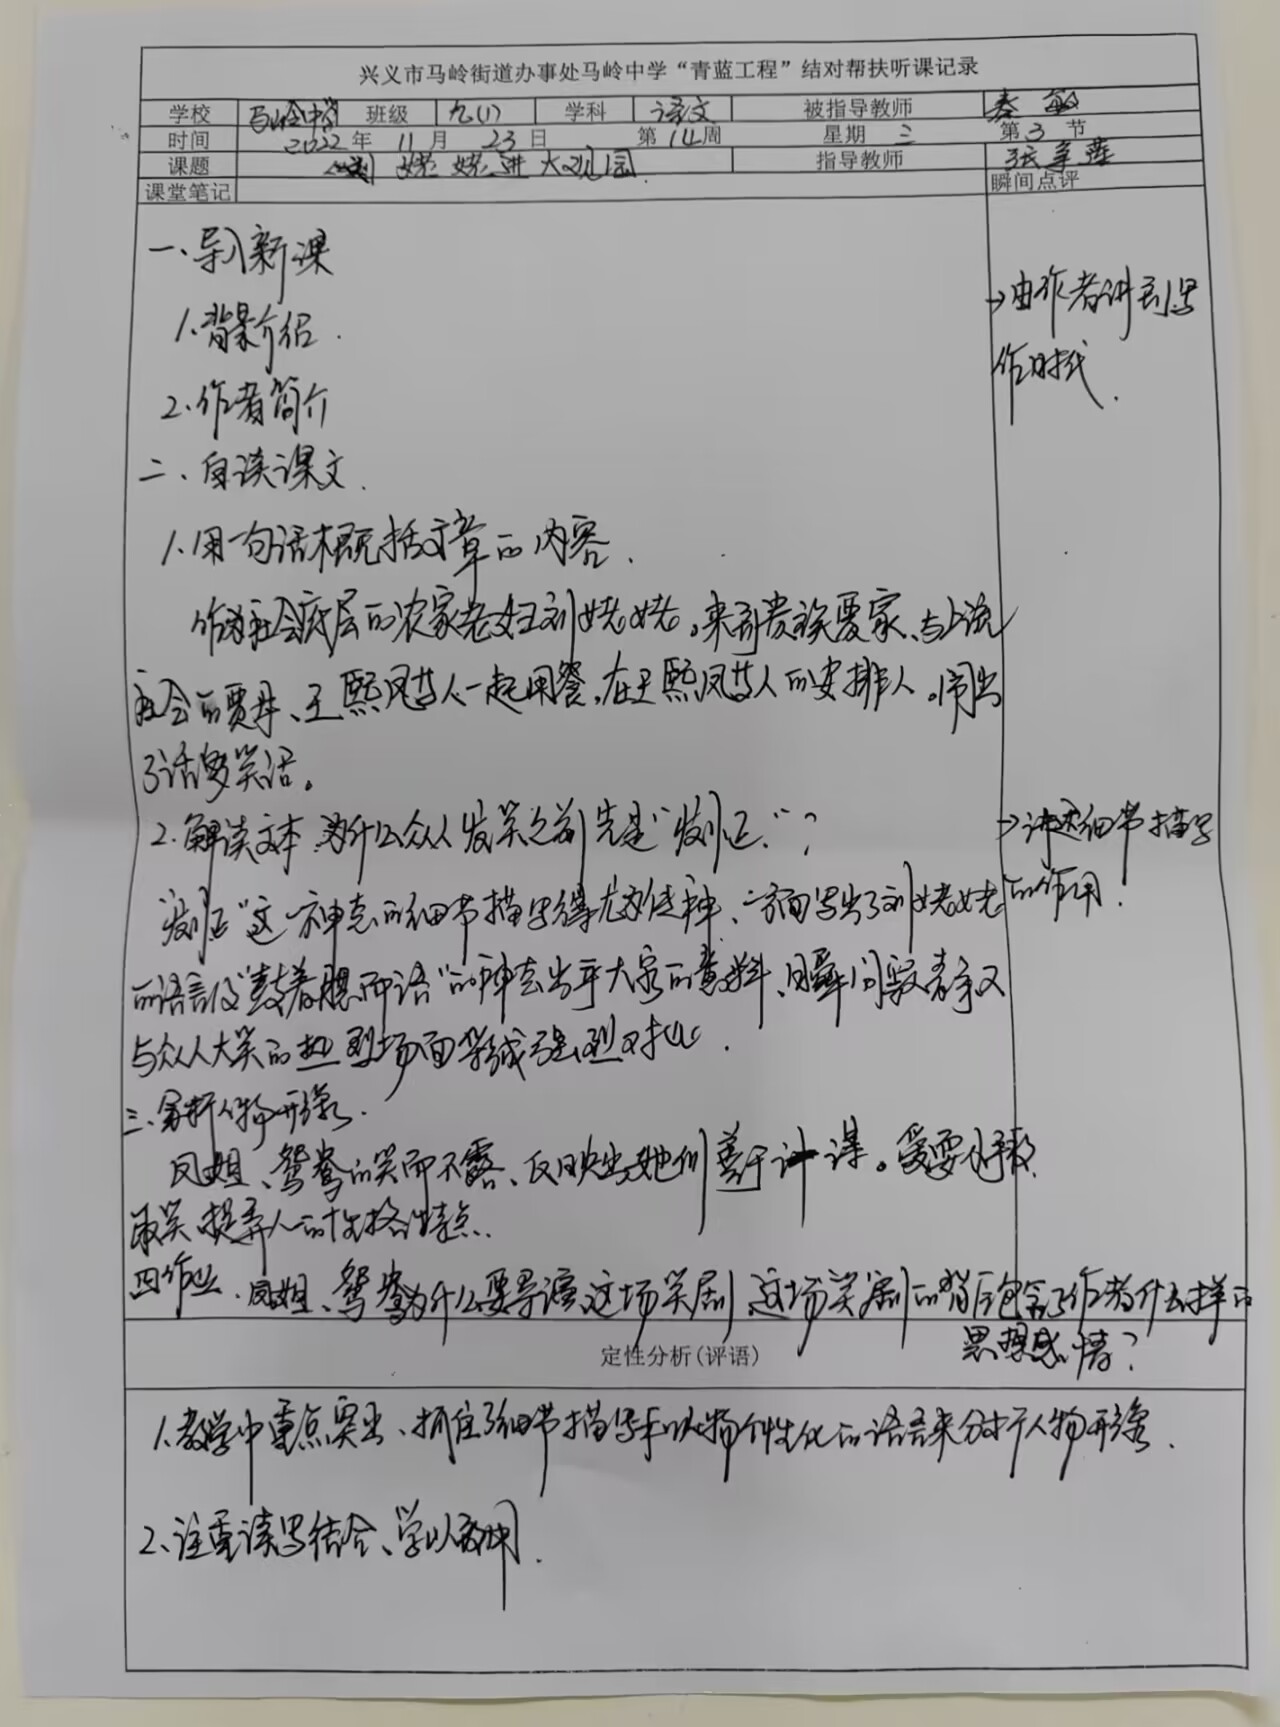 兴义市马岭街道办事处马岭中学“青蓝工程”结对帮扶听课记录
学校 马岭中学 班级 九(1) 学科 语文 被指导教师 秦敏
时间 2022年 11月 23日 第14周 星期三 第3节
课题 刘姥姥进大观园 指导教师 张
课堂笔记 瞬间点评
一、导入新课
1.背景介绍.
→由作者讲到写
作时代.
2.作者简介
二、自读课文.
1.用一句话概括文章的内容.
作为社会底层的农家老妇刘姥姥。来到贵族贾家、与上流
社会的贾母、王熙凤等人一起用餐,在王熙凤等人的安排人。闹出
了诸多笑话。
2.解读文本.为什么众人发笑之前先是“发怔.”?
→讲述细节描写
的作用.
发怔”这一神态的细节描写得尤为传神、一方面写出了刘姥姥
的语言及“鼓着腮不语”的神态出乎大家的意料、瞬间寂静又
与众人大笑的热烈场面学成强烈对比.
三、分析人物形象.
凤姐、鸳鸯的笑而不露、反映出她们善于计谋。爱耍手段
取笑、捉弄人的性格特点.
四作业.凤姐、鸳鸯为什么要导演这场笑剧,这场笑剧的背后包含了作者什么样的
思想感情?
定性分析(评语)
1.教学中重点突出、抓住了细节描写和人物个性化的语言来分析人物形象.
2、注重读写结合、学以致用.